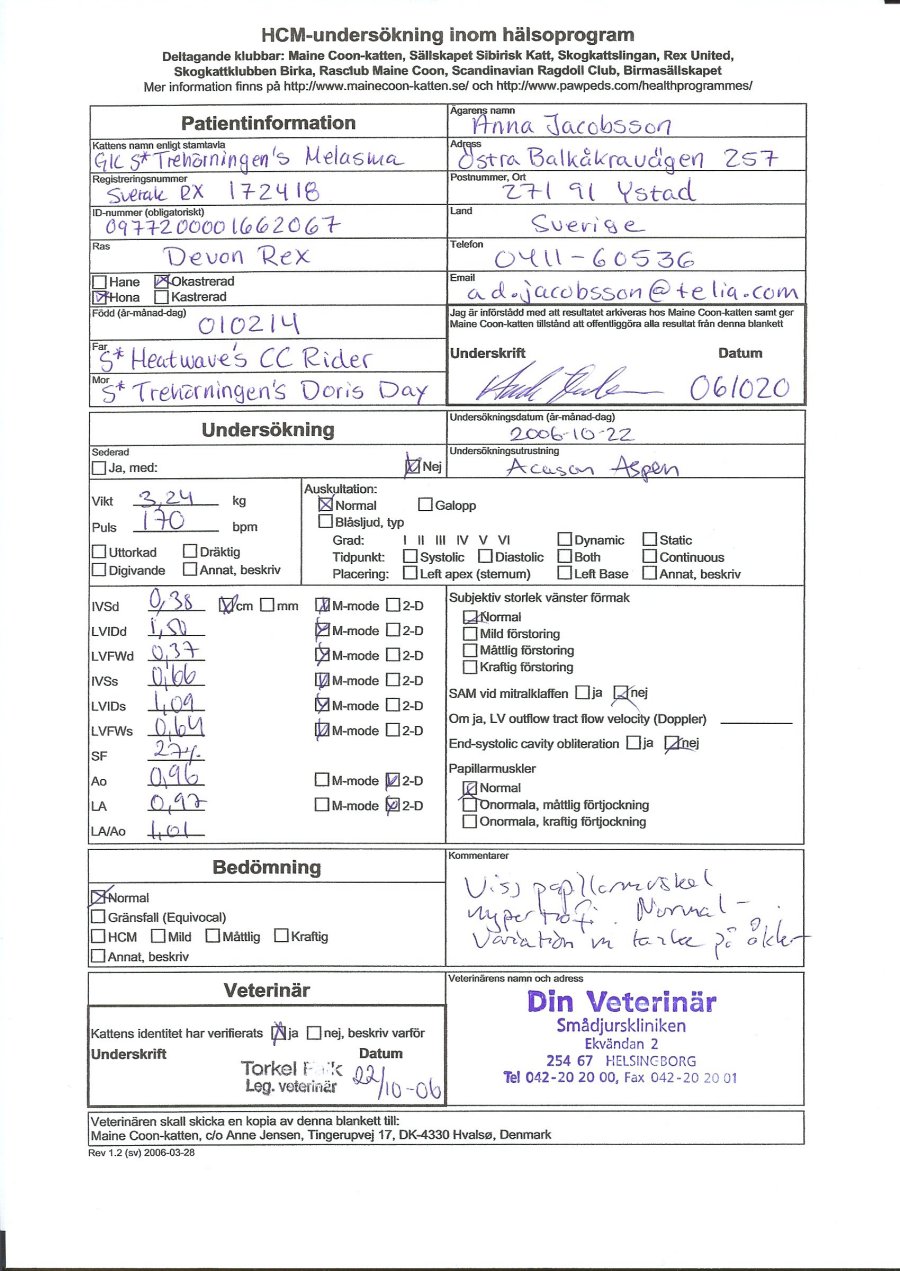 HCM-undersökning inom hälsoprogram
Deltagande klubbar: Maine Coon-katten, Sällskapet Sibirisk Katt, Skogkattslingan, Rex United,
Skogkattklubben Birka, Rasclub Maine Coon, Scandinavian Ragdoll Club, Birmasällskapet
Mer information finns på http://www.mainecoon-katten.se/ och http://www.pawpeds.com/healthprogrammes/
Patientinformation
Kattens namn enligt stamtavla
GIC S* Trehörningen's Melasma
Registreringsnummer
Sverak RX 172418
ID-nummer (obligatoriskt)
0977200001662067
Ras
Devon Rex
Hane Okastrerad
Hona Kastrerad
Född (år-månad-dag)
010214
Far
S* Heatwave's CC Rider
Mor
S* Trehörningen's Doris Day
Ägarens namn
Anna Jacobsson
Adress
Östra Balkåkravägen 257
Postnummer, Ort
271 91 Ystad
Land
Sverige
Telefon
0411-60536
Email
ad.jacobsson@telia.com
Jag är införstådd med att resultatet arkiveras hos Maine Coon-katten samt ger
Maine Coon-katten tillstånd att offentliggöra alla resultat från denna blankett
Underskrift Datum
061020
Undersökning
Sederad
Ja, med: Nej
Undersökningsdatum (år-månad-dag)
2006-10-22
Undersökningsutrustning
Acuson Aspen
Vikt 3,24 kg
Puls 170 bpm
Uttorkad Dräktig
Digivande Annat, beskriv
Auskultation:
Normal Galopp
Blåsljud, typ
Grad: I II III IV V VI Dynamic Static
Tidpunkt: Systolic Diastolic Both Continuous
Placering: Left apex (sternum) Left Base Annat, beskriv
IVSd 0,38 cm mm M-mode 2-D
LVIDd 1,50 M-mode 2-D
LVFWd 0,37 M-mode 2-D
IVSs 0,66 M-mode 2-D
LVIDs 1,09 M-mode 2-D
LVFWs 0,64 M-mode 2-D
SF 27%
Ao 0,96 M-mode 2-D
LA 0,97 M-mode 2-D
LA/Ao 1,01
Subjektiv storlek vänster förmak
Normal
Mild förstoring
Måttlig förstoring
Kraftig förstoring
SAM vid mitralklaffen ja nej
Om ja, LV outflow tract flow velocity (Doppler)
End-systolic cavity obliteration ja nej
Papillarmuskler
Normal
Onormala, måttlig förtjockning
Onormala, kraftig förtjockning
Bedömning
Normal
Gränsfall (Equivocal)
HCM Mild Måttlig Kraftig
Annat, beskriv
Kommentarer
Viss papillarmuskel
hypertrofi. Normal-
variation m tanke på ålder
Veterinär
Kattens identitet har verifierats ja nej, beskriv varför
Underskrift Datum
Torkel
Leg. veterinär
22/10-06
Veterinärens namn och adress
Din Veterinär
Smådjurskliniken
Ekvändan 2
254 67 HELSINGBORG
Tel 042-20 20 00, Fax 042-20 20 01
Veterinären skall skicka en kopia av denna blankett till:
Maine Coon-katten, c/o Anne Jensen, Tingerupvej 17, DK-4330 Hvalsø, Denmark
Rev 1.2 (sv) 2006-03-28